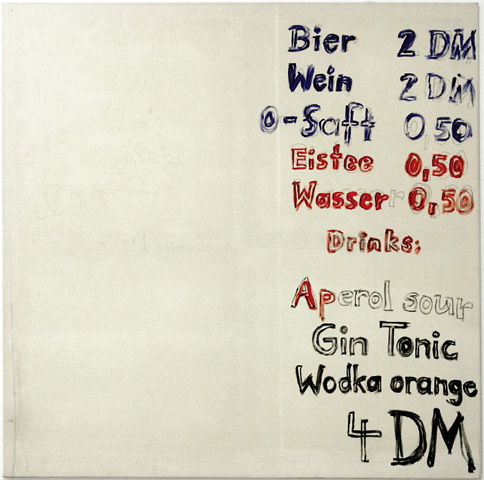 Bier 2 DM
Wein 2 DM
O-Saft 0,50
Eistee 0,50
Wasser 0,50
Drinks:
Aperol sour
Gin Tonic
Wodka orange
4 DM